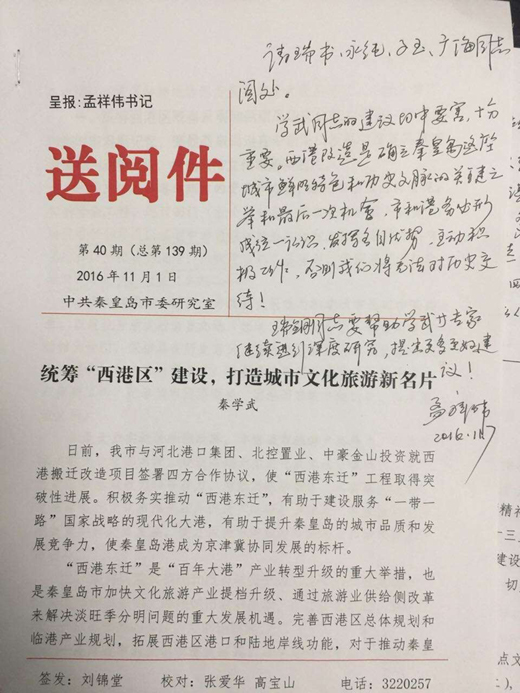 请瑞书、永纯、子玉、广海同志
阅处。
学武同志的建议切中要害，十分
重要。西港改造是确立秦皇岛这座
城市鲜明特色和历史文脉的关键之
举和最后一次机会，市和港务由形
成统一认识，发挥各自优势，主动积
极工作，否则我们将无法对历史交
待！
同志要帮助学武等专家
继续进行深度研究，提出更多更好建
议！
孟祥伟
2016.11.7
呈报：孟祥伟书记
送阅件
第 40 期（总第 139 期）
2016 年 11 月 1 日
中共秦皇岛市委研究室
统筹“西港区”建设，打造城市文化旅游新名片
秦学武
日前，我市与河北港口集团、北控置业、中豪金山投资就西
港搬迁改造项目签署四方合作协议，使“西港东迁”工程取得突
破性进展。积极务实推动“西港东迁”，有助于建设服务“一带一
路”国家战略的现代化大港，有助于提升秦皇岛的城市品质和发
展竞争力，使秦皇岛港成为京津冀协同发展的标杆。
“西港东迁”是“百年大港”产业转型升级的重大举措，也
是秦皇岛市加快文化旅游产业提档升级、通过旅游业供给侧改革
来解决淡旺季分明问题的重大发展机遇。完善西港区总体规划和
临港产业规划，拓展西港区港口和陆地岸线功能，对于推动秦皇
签发：刘锦堂 校对：张爱华 高宝山 电话：3220257